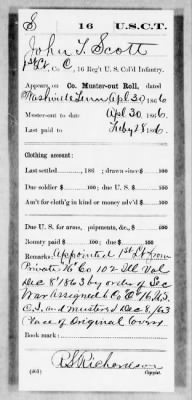 S 16 U.S.C.T.
John T. Scott
1st Lt, Co. C, 16 Reg't U. S. Col'd Infantry.
Appears on Co. Muster-out Roll, dated
Nashville Tenn Apl 30, 1866
Muster-out to date Apl 30, 1866
Last paid to Feby 28, 1866
Clothing account:
Last settled , 186 ; drawn since $ 100
Due soldier $ 100; due U. S. $ 100
Am't for cloth'g in kind or money adv'd $ 100
Due U. S. for arms, equipments, &c., $ 100
Bounty paid $ 100; due $ 100
Remarks: Appointed 1st Lt from
Private Co 102 Ill Vol
Dec 8" 1863 by order of Sec
War Assigned to Co "C" 16 U.S.
C.I. and mustered Dec 8, 1863
Vace of Original
Book mark:
R S Richardson
Copyist.